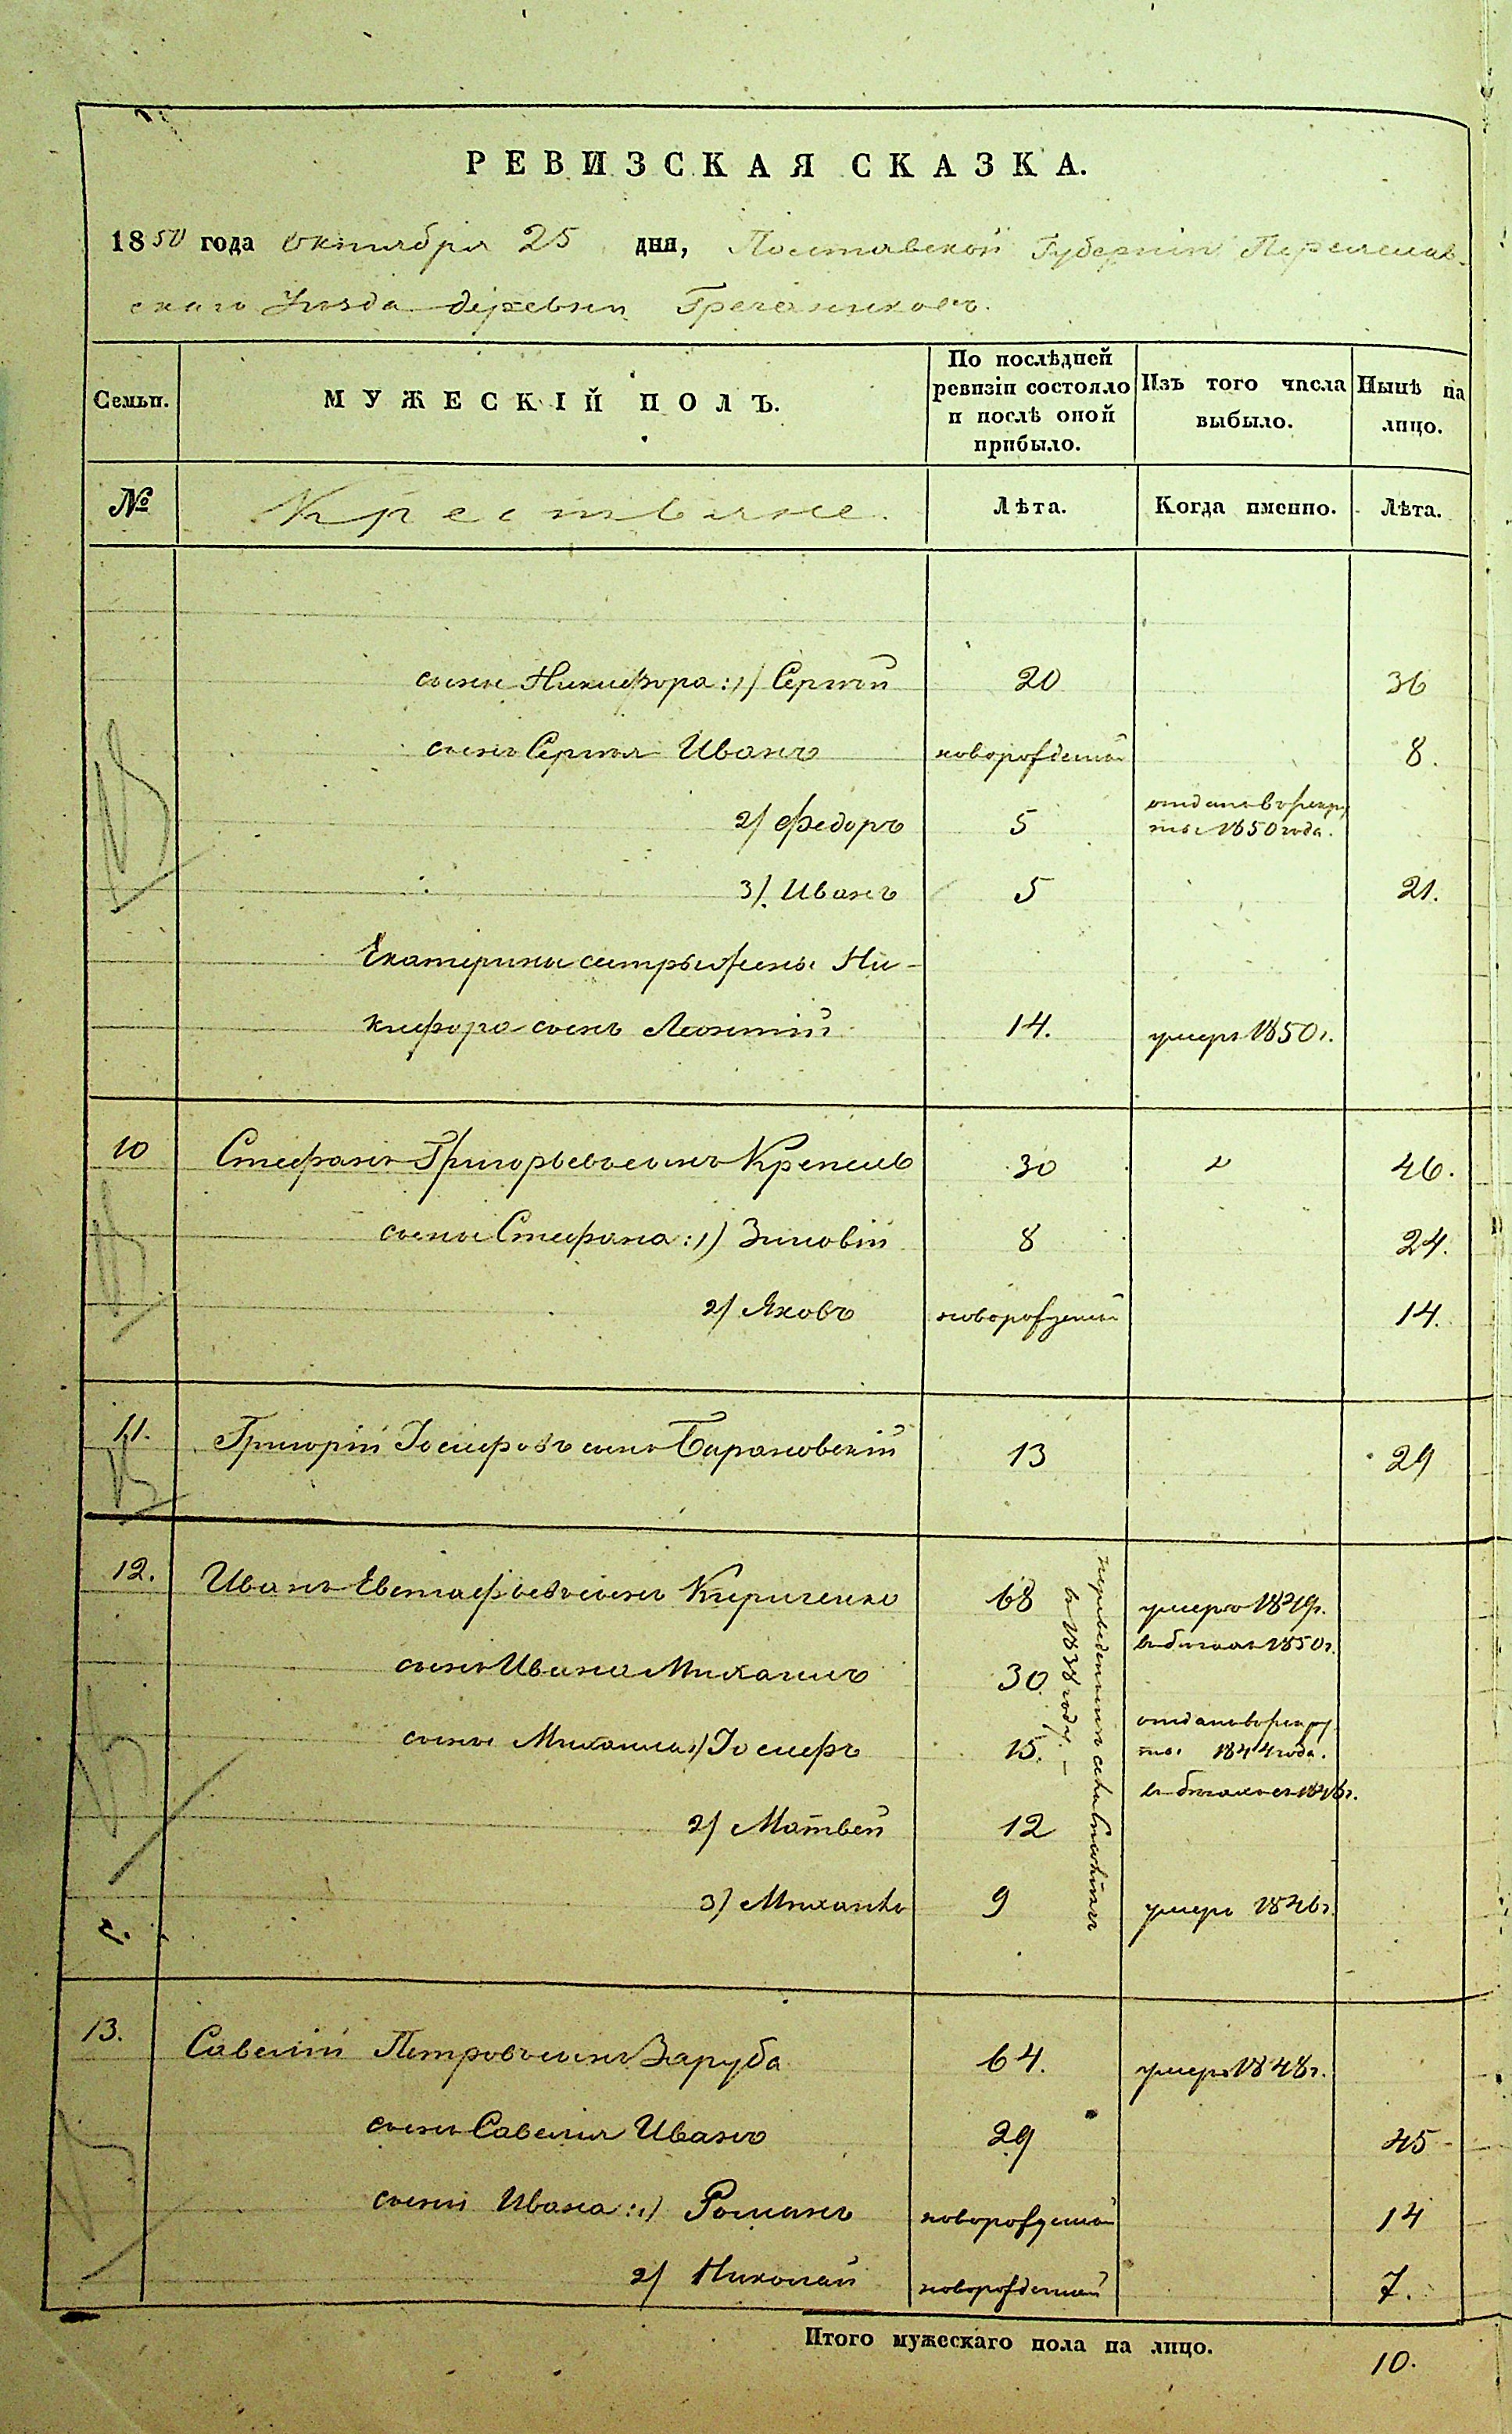 РЕВИЗСКАЯ СКАЗКА.
1850 года октября 25 дня, Полтавской Губерніи Переяслав-
скаго Уѣзда деревни Гречаниковъ.
Семьи. МУЖЕСКІЙ ПОЛЪ. По послѣдней ревизіи состояло и послѣ оной прибыло. Изъ того числа выбыло. Нынѣ на лицо.
№ Крестьяне. Лѣта. Когда именно. Лѣта.
сыны Никифора: 1) Сергѣй 20 36
сынъ Сергѣя Иванъ новорожденный 8.
2) Федоръ 5 отданъ въ рекру
ты 1850 года.
3). Иванъ 5 21.
Екатерины сестры жены Ни-
кифора сынъ Леонтій 14. умеръ 1850 г.
10 Стефанъ Григорьевъ сынъ Крепель 30 46.
сыны Стефана: 1) Зиновій 8 24.
2) Яковъ новорожденный 14.
11. Григорій Іосифовъ сынъ Барановскій 13 29
12. Иванъ Евстафьевъ сынъ Кириченко 68 умеръ 18 г.
сынъ Ивана Михаилъ 30. въ бѣгахъ 1850 г.
сыны Михаила 1) Іосифъ 15. отданъ въ рекру
ты 1844 года.
2) Матвей 12 въ бѣгахъ съ г.
3) Михаилъ 9 умеръ 1846 г.
въ 1838 году. —
13. Савелій Петровъ сынъ Заруба 64. умеръ 1848 г.
сынъ Савелія Иванъ 29 45
сыны Ивана: 1) Романъ новорожденный 14
2) Николай новорожденный 7.
Итого мужескаго пола на лицо. 10.